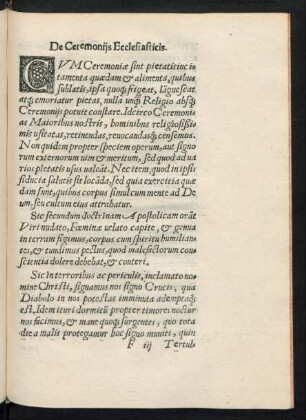 De Ceremonijs Ecclesiasticis.
CVM Ceremoniæ sint pietatis inci
tamenta quædam & alimenta, quibus
sublatis, ipsa quoq; frigeat, lãgueseat
atq; emoriatur pietas, nulla unq̃ Religio absq;
Ceremonijs potuit constare. Idcirco Ceremoni-
as Maioribus nostris, hominibus religiosissi-
mis usitatas, retinendas, reuocandasq; censemus.
Non quidem propter speciem operum, aut signo
rum externorum uim & meritum, sed quod ad ua
rios pietatis usus ualeãt. Nec item quod in ipsis
fiducia salutis sit locãda, sed quia exercitia quæ
dam sunt, quibus corpus simul cum mente ad De
um, seu cultum eius attrahatur.
Sic secundum doctrinam Apostolicam orãt
Viri nudato, Fœminæ uelato capite, & genua
in terram figimus, corpus cum spiritu humilian-
tes, & tundimus pectus, quod malefactorum con-
scientia dolere debebat, & conteri.
Sic In terroribus ac periculis, inclamato no-
mine Christi, signamus nos signo Crucis, qua
Diabolo in nos potestas imminuta ademptaq;
est, Idem ituri dormitũ propter timores noctur
nos facimus, & mane quoq; surgentes, quo tota
die a malis protegamur hoc signo muniti, quin
F iij Tertul-